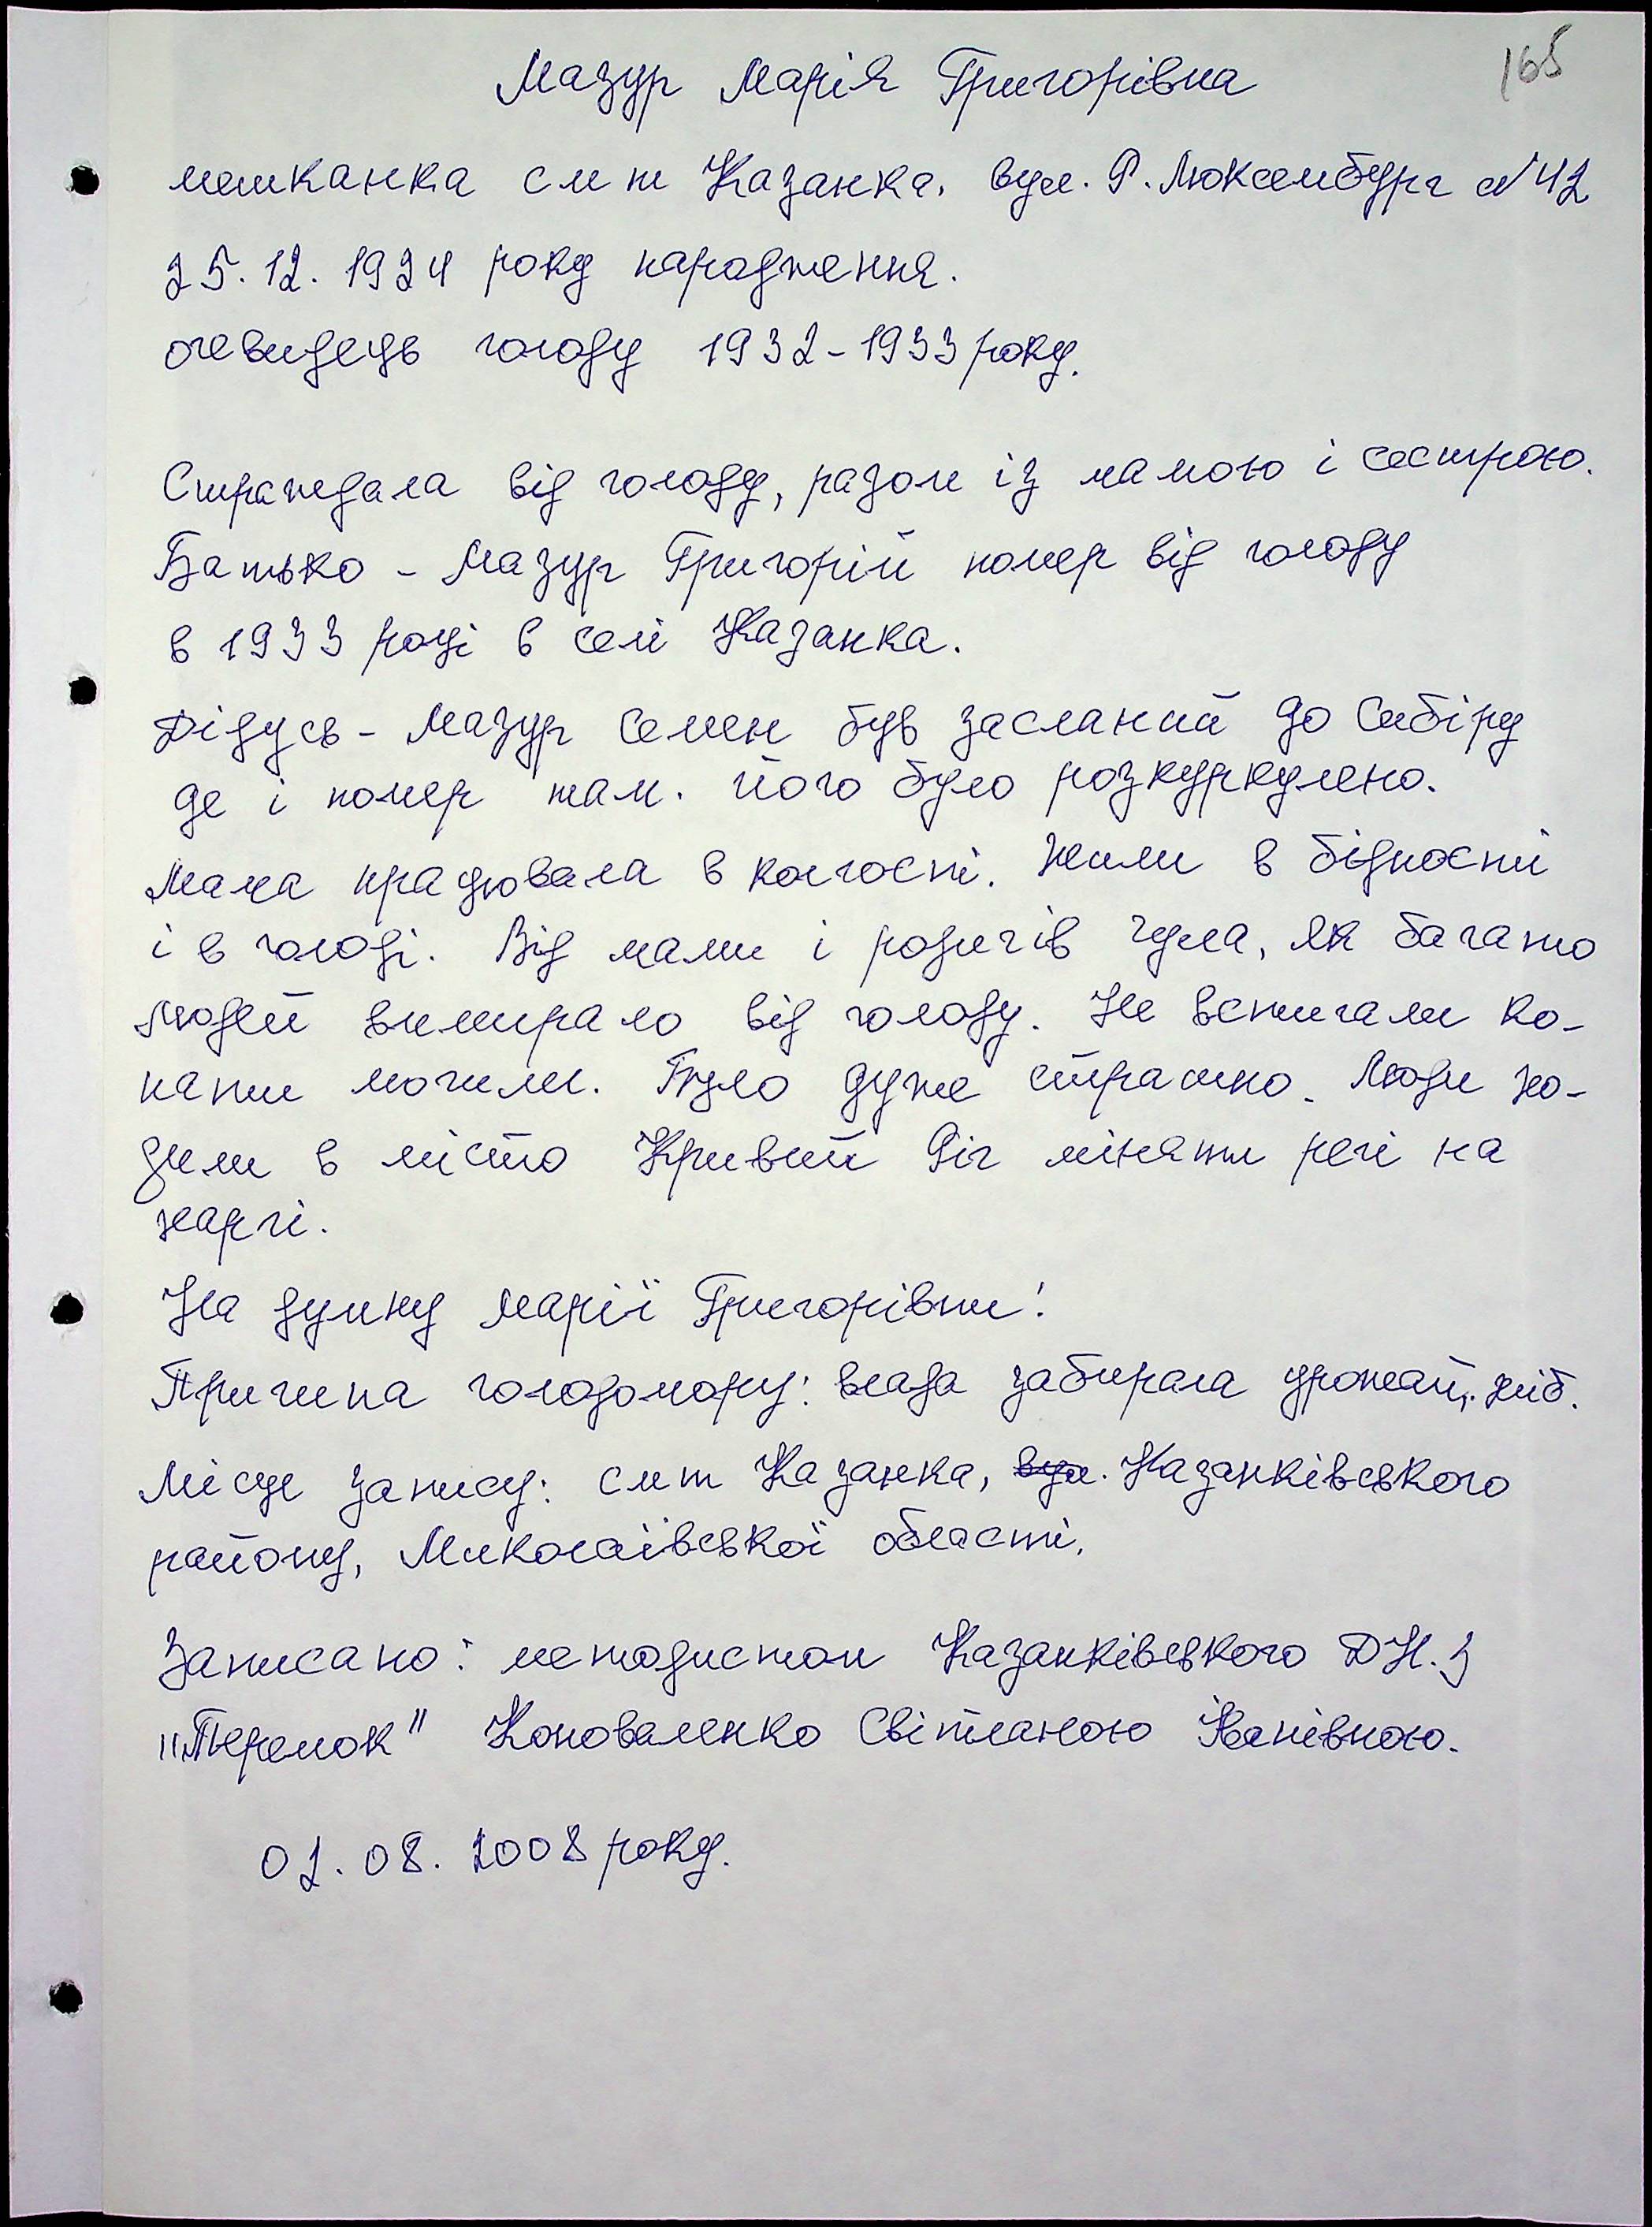 165
Мазур Марія Григорівна
мешканка смт Казанка, вул. Р. Люксембург №42
25.12.1924 року народження.
очевидець голоду 1932-1933 року.
Страждала від голоду, разом із мамою і сестрою.
Батько - Мазур Григорій помер від голоду
в 1933 році в селі Казанка.
Дідусь - Мазур Семен був засланий до Сибіру
де і помер там. Його було розкуркулено.
Мама працювала в колгоспі. Жили в бідності
і в голоді. Від мами і родичів чула, як багато
людей вимирало від голоду. Не встигали ко-
пати могили. Було дуже страшно. Люди хо-
дили в місто Кривий Ріг міняти речі на
харчі.
На думку Марії Григорівни:
Причина голодомору: влада забирала урожай, хліб.
Місце запису: смт Казанка, вул. Казанківського
району, Миколаївської області.
Записано: методистом Казанківського ДНЗ
"Теремок" Коноваленко Світланою Іванівною.
02.08.2008 року.